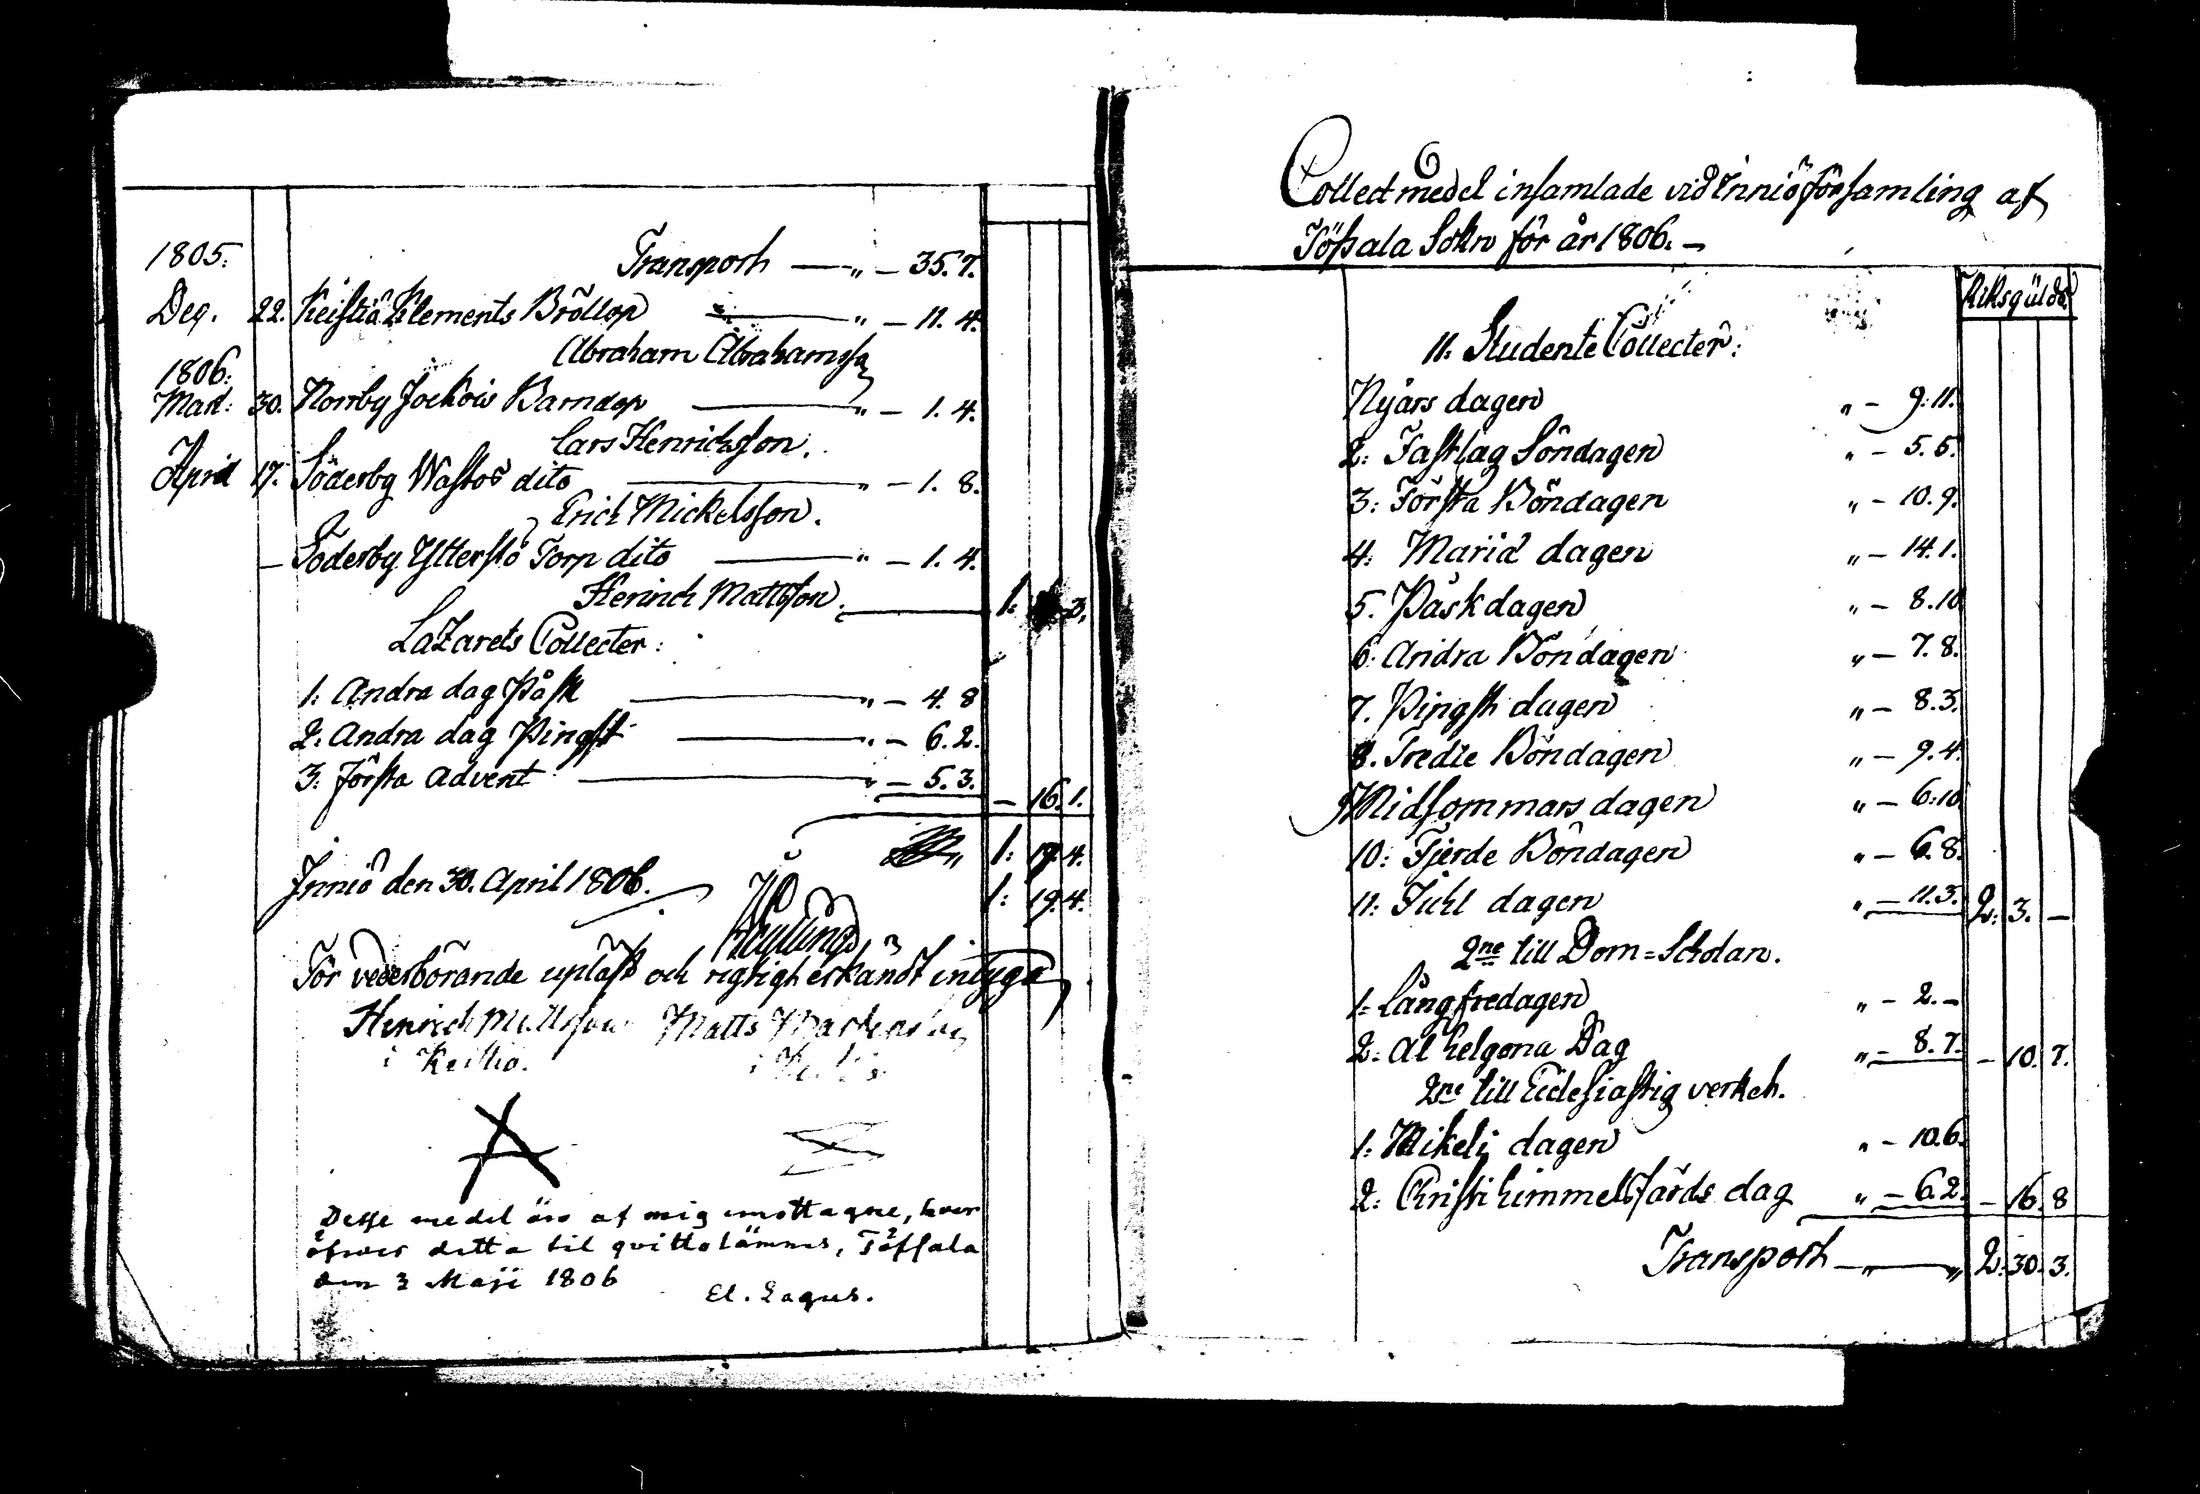 1805.
Transport — " — 35. 7.
Dec. 22. Keistiö Klements Bröllop — " — 11. 4.
Abraham Abrahamss.
1806.
Mart: 30. Norrby Jockois Barndop — " — 1. 4.
Lars Henricksson.
April 17. Söderby Wastos dito — " — 1. 8.
Erich Mickelsson.
— Söderby Ytterstö Torp dito — " — 1. 4.
Henrich Mattsson. — 1: 3.
Lazarets Collecter:
1: Andra dag Påsk — " — 4. 8
2: Andra dag Pingst — " — 6. 2.
3: Första Advent — " — 5. 3.
— 16. 1.
1: 19. 4.
Inniö den 30. April 1806.
1: 19. 4.
För vederbörande upläst och rigtigt erkändt intyga
Henrich Mattsson Matts
i Keistiö.
Desse medel äro af mig emottagne, hvar
öfwer detta til qvitto lämnas, Töfsala
den 3 Maji 1806
El. Lagus.
Collect medel insamlade vid Inniö församling af
Töfsala Sokn för år 1806. —
Riksgülds
11: Studente Collecter:
Nyårs dagen " — 9: 11.
2: Fastlag Söndagen " — 5. 5.
3: Första Böndagen " — 10. 9.
4: Mariæ dagen " — 14. 1.
5. Påsk dagen " — 8. 10
6: Andra Böndagen " — 7. 8.
7. Pingst dagen " — 8. 3.
8. Tredie Böndagen " — 9. 4.
9 Midsommars dagen " — 6: 10
10: Fjerde Böndagen " — 6. 8.
11: Juhl dagen " — 11. 3. 2: 3. —
2ne till Dom=Scholan.
1: Långfredagen " — 2. —
2: Al helgona Dag " — 8. 7. — 10. 7.
2ne till Ecclesiastig verket.
1: Mikeli dagen " — 10. 6.
2: Christi himmelsfärds dag " — 6. 2. — 16. 8
Transport — " 2: 30. 3.